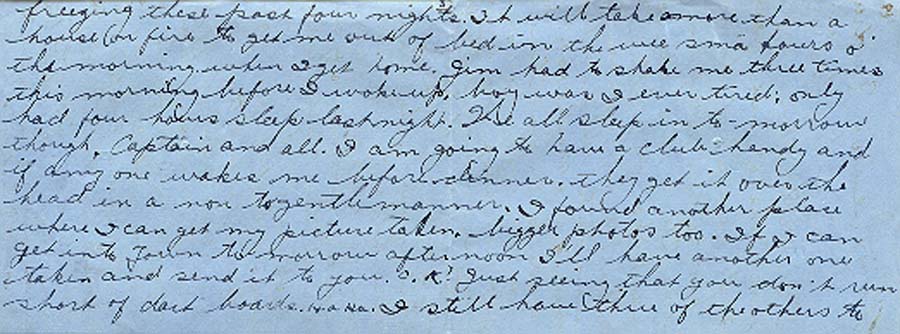 freezing these past four nights. It will take more than a
house on fire to get me out of bed in the wee sma hours o'
the morning when I get home. Jim had to shake me three times
this morning before I woke up, boy was I ever tired; only
had four hours sleep last night. We all sleep in to-morrow
though, Captain and all. I am going to have a club handy and
if any one wakes me before dinner, they get it over the
head in a non to gentle manner. I found another place
where I can get my picture taken, bigger photos too. If I can
get into Town to morrow afternoon I'll have another one
taken and send it to you. O.K! Just seeing that you don't run
short of dart boards. Ha Ha. I still have three of the others to